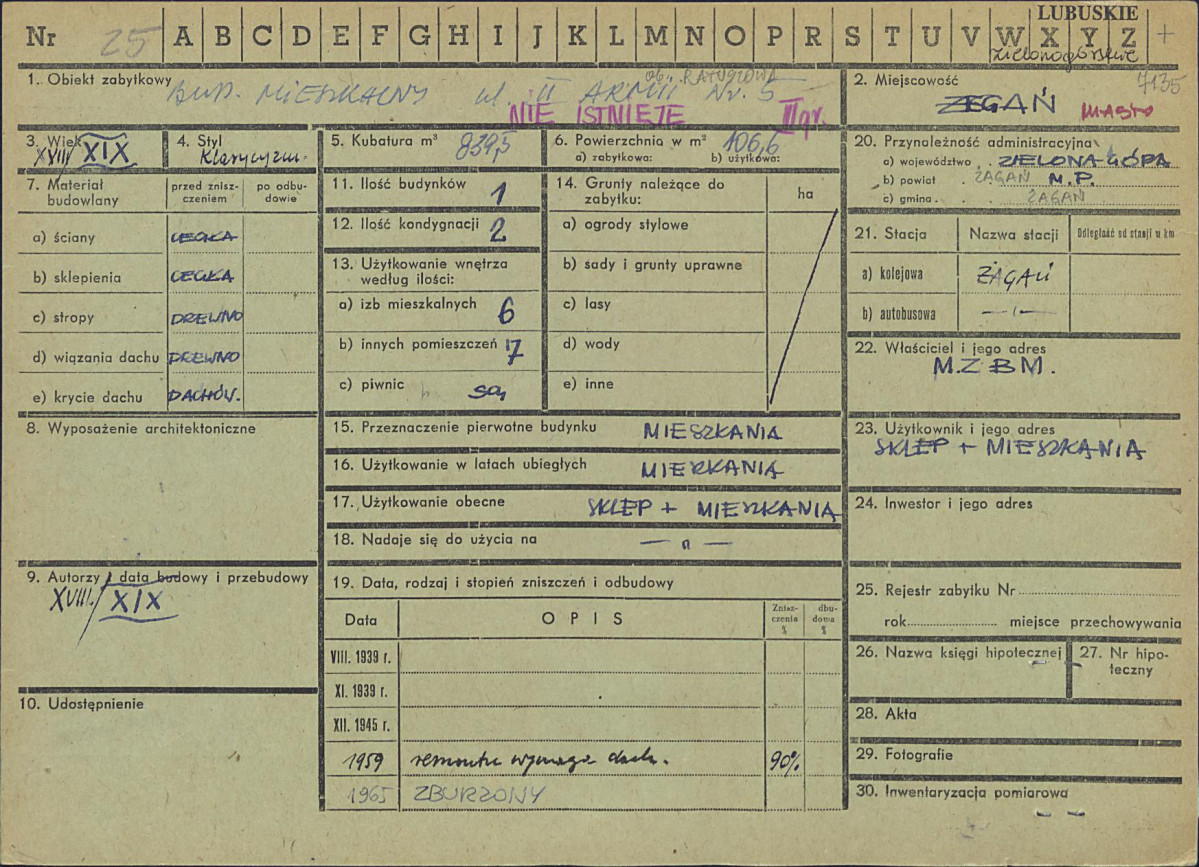 LUBUSKIE
Nr 25 A B C D E F G H I J K L M N O P R S T U V W X Y Z +
Zielonogórskie
1. Obiekt zabytkowy BUD. MIESZKALNY ul II ARMII Nr. 5
ob. RATUSZOWA
NIE ISTNIEJE III gr.
2. Miejscowość 7135
ŻEGAŃ MIASTO
3. Wiek XVIII/XIX
4. Styl Klasycyzm.
5. Kubatura m³ 839,5
6. Powierzchnia w m² 106,6
a) zabytkowa: b) użytkowa:
7. Materiał budowlany
przed znisz-
czeniem
po odbu-
dowie
a) ściany CEGŁA
b) sklepienia CEGŁA
c) stropy DREWNO
d) wiązania dachu DREWNO
e) krycie dachu DACHÓW.
8. Wyposażenie architektoniczne
9. Autorzy i data budowy i przebudowy
XVIII/XIX
10. Udostępnienie
11. Ilość budynków 1
12. Ilość kondygnacji 2
13. Użytkowanie wnętrza
według ilości:
a) izb mieszkalnych 6
b) innych pomieszczeń 7
c) piwnic są
14. Grunty należące do
zabytku:
ha
a) ogrody stylowe
b) sady i grunty uprawne
c) lasy
d) wody
e) inne
15. Przeznaczenie pierwotne budynku MIESZKANIA
16. Użytkowanie w latach ubiegłych MIERKANIA
17. Użytkowanie obecne SKLEP + MIESZKANIA
18. Nadaje się do użycia na — „ —
19. Data, rodzaj i stopień zniszczeń i odbudowy
Data OPIS Znisz-
czenia
%
dbu-
dowa
%
VIII. 1939 r.
XI. 1939 r.
XII. 1945 r.
1959 remontu wymaga dach. 90%
1965 ZBURZONY
20. Przynależność administracyjna
a) województwo . ZIELONA-GÓRA
b) powiat . ŻAGAŃ M.P.
c) gmina . ŻAGAŃ
21. Stacja Nazwa stacji Odległość od stacji w km
a) kolejowa ŻAGAŃ
b) autobusowa — „ —
22. Właściciel i jego adres
M.Z.B.M.
23. Użytkownik i jego adres
SKLEP + MIESZKANIA
24. Inwestor i jego adres
25. Rejestr zabytku Nr
rok miejsce przechowywania
26. Nazwa księgi hipotecznej
27. Nr hipo-
teczny
28. Akta
29. Fotografie
30. Inwentaryzacja pomiarowa